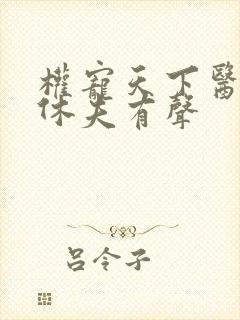 權寵天下醫
休夫有聲
呂令子